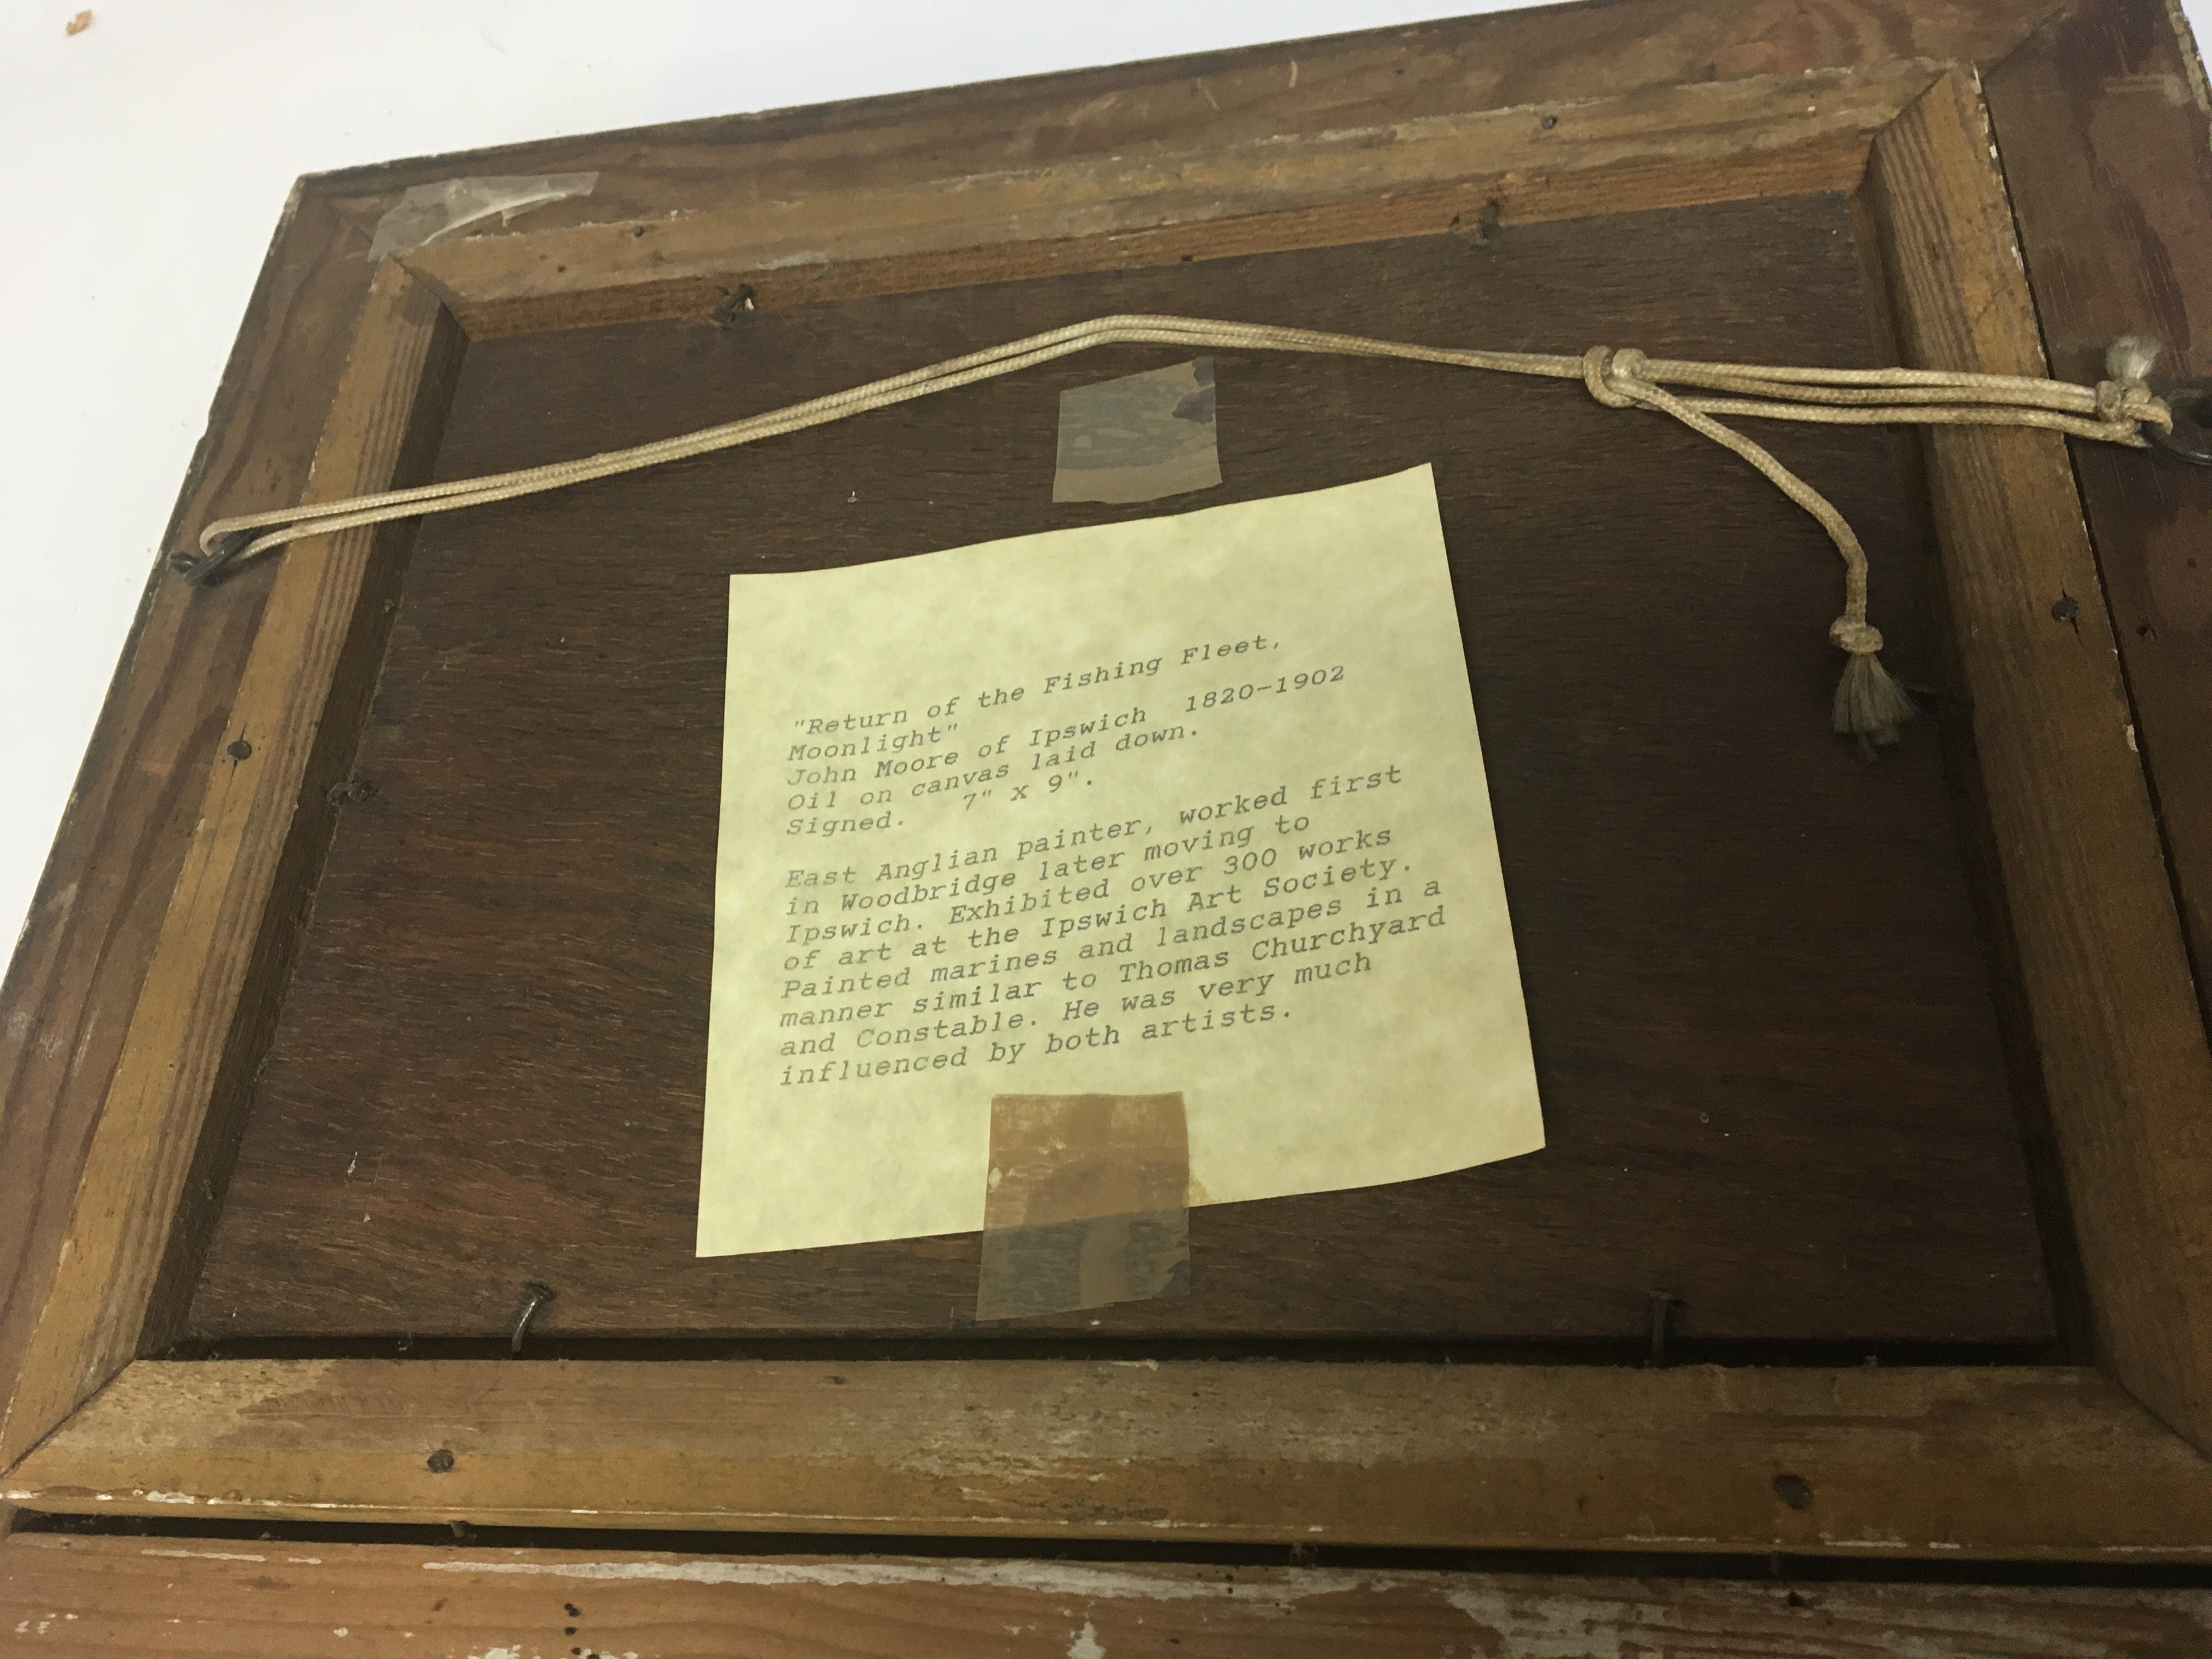 "Return of the Fishing Fleet,
Moonlight"
John Moore of Ipswich 1820-1902
Oil on canvas laid down.
Signed. 7" X 9".
East Anglian painter, worked first
in Woodbridge later moving to
Ipswich. Exhibited over 300 works
of art at the Ipswich Art Society.
Painted marines and landscapes in a
manner similar to Thomas Churchyard
and Constable. He was very much
influenced by both artists.